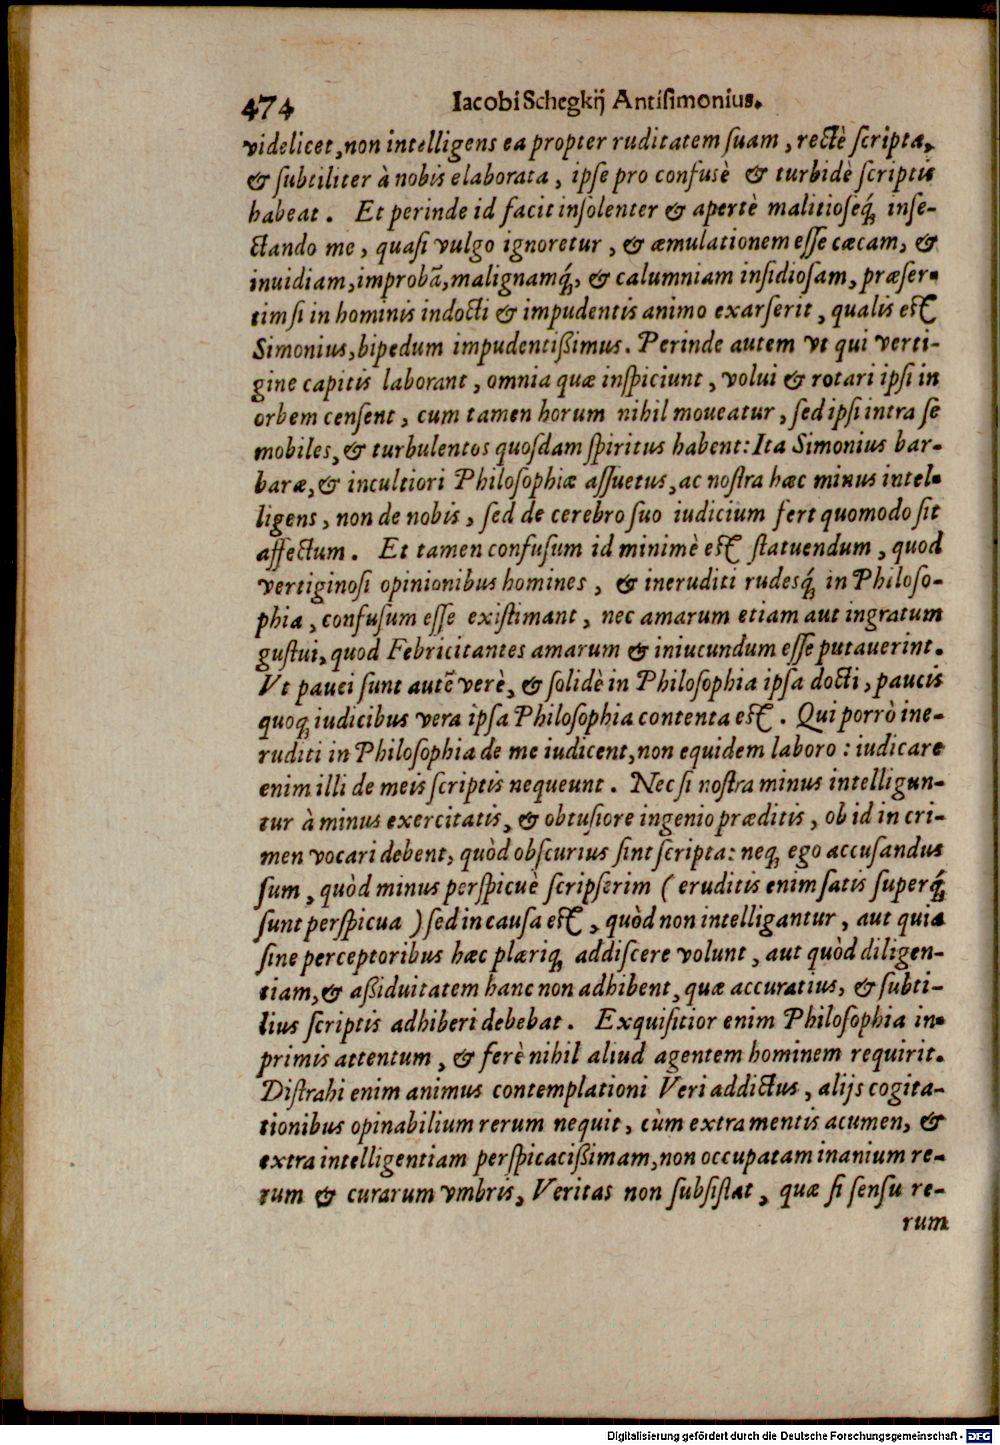 474 Iacobi Schegkij Antisimonius.
videlicet, non intelligens ea propter ruditatem ſuam, rectè ſcripta,
& ſubtiliter à nobis elaborata, ipſe pro confusè & turbidè ſcriptis
habeat. Et perinde id facit inſolenter & apertè malitioſeq́; inſe-
ctando me, quaſi vulgo ignoretur, & æmulationem eſſe cæcam, &
inuidiam, improbā, malignamq́;, & calumniam inſidioſam, præſer-
tim ſi in hominis indocti & impudentis animo exarſerit, qualis eſt
Simonius, bipedum impudentißimus. Perinde autem vt qui verti-
gine capitis laborant, omnia quæ inſpiciunt, volui & rotari ipſi in
orbem cenſent, cum tamen horum nihil moueatur, ſed ipſi intra ſe
mobiles, & turbulentos quoſdam ſpiritus habent: Ita Simonius bar-
baræ, & incultiori Philoſophiæ aſſuetus, ac noſtra hæc minus intel-
ligens, non de nobis, ſed de cerebro ſuo iudicium fert quomodo ſit
affectum. Et tamen confuſum id minimè eſt ſtatuendum, quod
vertiginoſi opinionibus homines, & ineruditi rudesq́; in Philoſo-
phia, confuſum eſſe exiſtimant, nec amarum etiam aut ingratum
guſtui, quod Febricitantes amarum & iniucundum eſſe putauerint.
Vt pauci ſunt autē verè, & ſolidè in Philoſophia ipſa docti, paucis
quoq; iudicibus vera ipſa Philoſophia contenta eſt. Qui porrò ine-
ruditi in Philoſophia de me iudicent, non equidem laboro: iudicare
enim illi de meis ſcriptis nequeunt. Nec ſi noſtra minus intelligun-
tur à minus exercitatis, & obtuſiore ingenio præditis, ob id in cri-
men vocari debent, quòd obſcurius ſint ſcripta: neq; ego accuſandus
ſum, quòd minus perſpicuè ſcripſerim (eruditis enim ſatis ſuperq́;
ſunt perſpicua) ſed in cauſa eſt, quòd non intelligantur, aut quia
ſine perceptoribus hæc plæriq; addiſcere volunt, aut quòd diligen-
tiam, & aßiduitatem hanc non adhibent, quæ accuratius, & ſubti-
lius ſcriptis adhiberi debebat. Exquiſitior enim Philoſophia in-
primis attentum, & ferè nihil aliud agentem hominem requirit.
Diſtrahi enim animus contemplationi Veri addictus, alijs cogita-
tionibus opinabilium rerum nequit, cùm extra mentis acumen, &
extra intelligentiam perſpicacißimam, non occupatam inanium re-
rum & curarum vmbris, Veritas non ſubſiſtat, quæ ſi ſenſu re-
rum
Digitalisierung gefördert durch die Deutsche Forschungsgemeinschaft - DFG